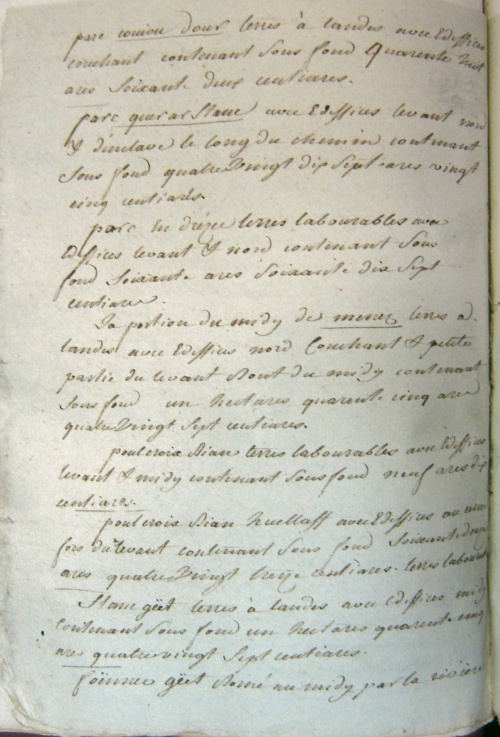 parc couiou dour terres à landes avec Ediffices
couchant contenant Sous fond Quarente huit
ares Soixante deux centiares.
parc guerar Stanc avec Ediffices levant nord
& d'enclave le long du chemin contenant
Sous fond quatre Vingt dix Sept ares vingt
cinq centiares.
parc En dreze terres labourables avec
Ediffices levant & nord contenant Sous
fond Soixante ares Soixante dix Sept
centiares.
La portion du midy de menez terres à
landes avec Ediffices nord Couchant & petite
partie du levant du midy contenant
Sous fond un hectares quarente cinq ares
quatre Vingt Sept centiares.
poulcroix Bian terres labourables avec Ediffices
levant & midy contenant Sous fond neuf ares dix
centiares.
poulcroix Bian huellaff avec Ediffices au
fors du levant contenant Sous fond Soixante douze
ares quatre Vingt treize centiares. terres labourables
Stanc gëet terres à landes avec Ediffices midy
contenant Sous fond un hectares quarente cinq
ares quatre vingt Sept centiares.
foënnec gëet Borné au midy par la rivière